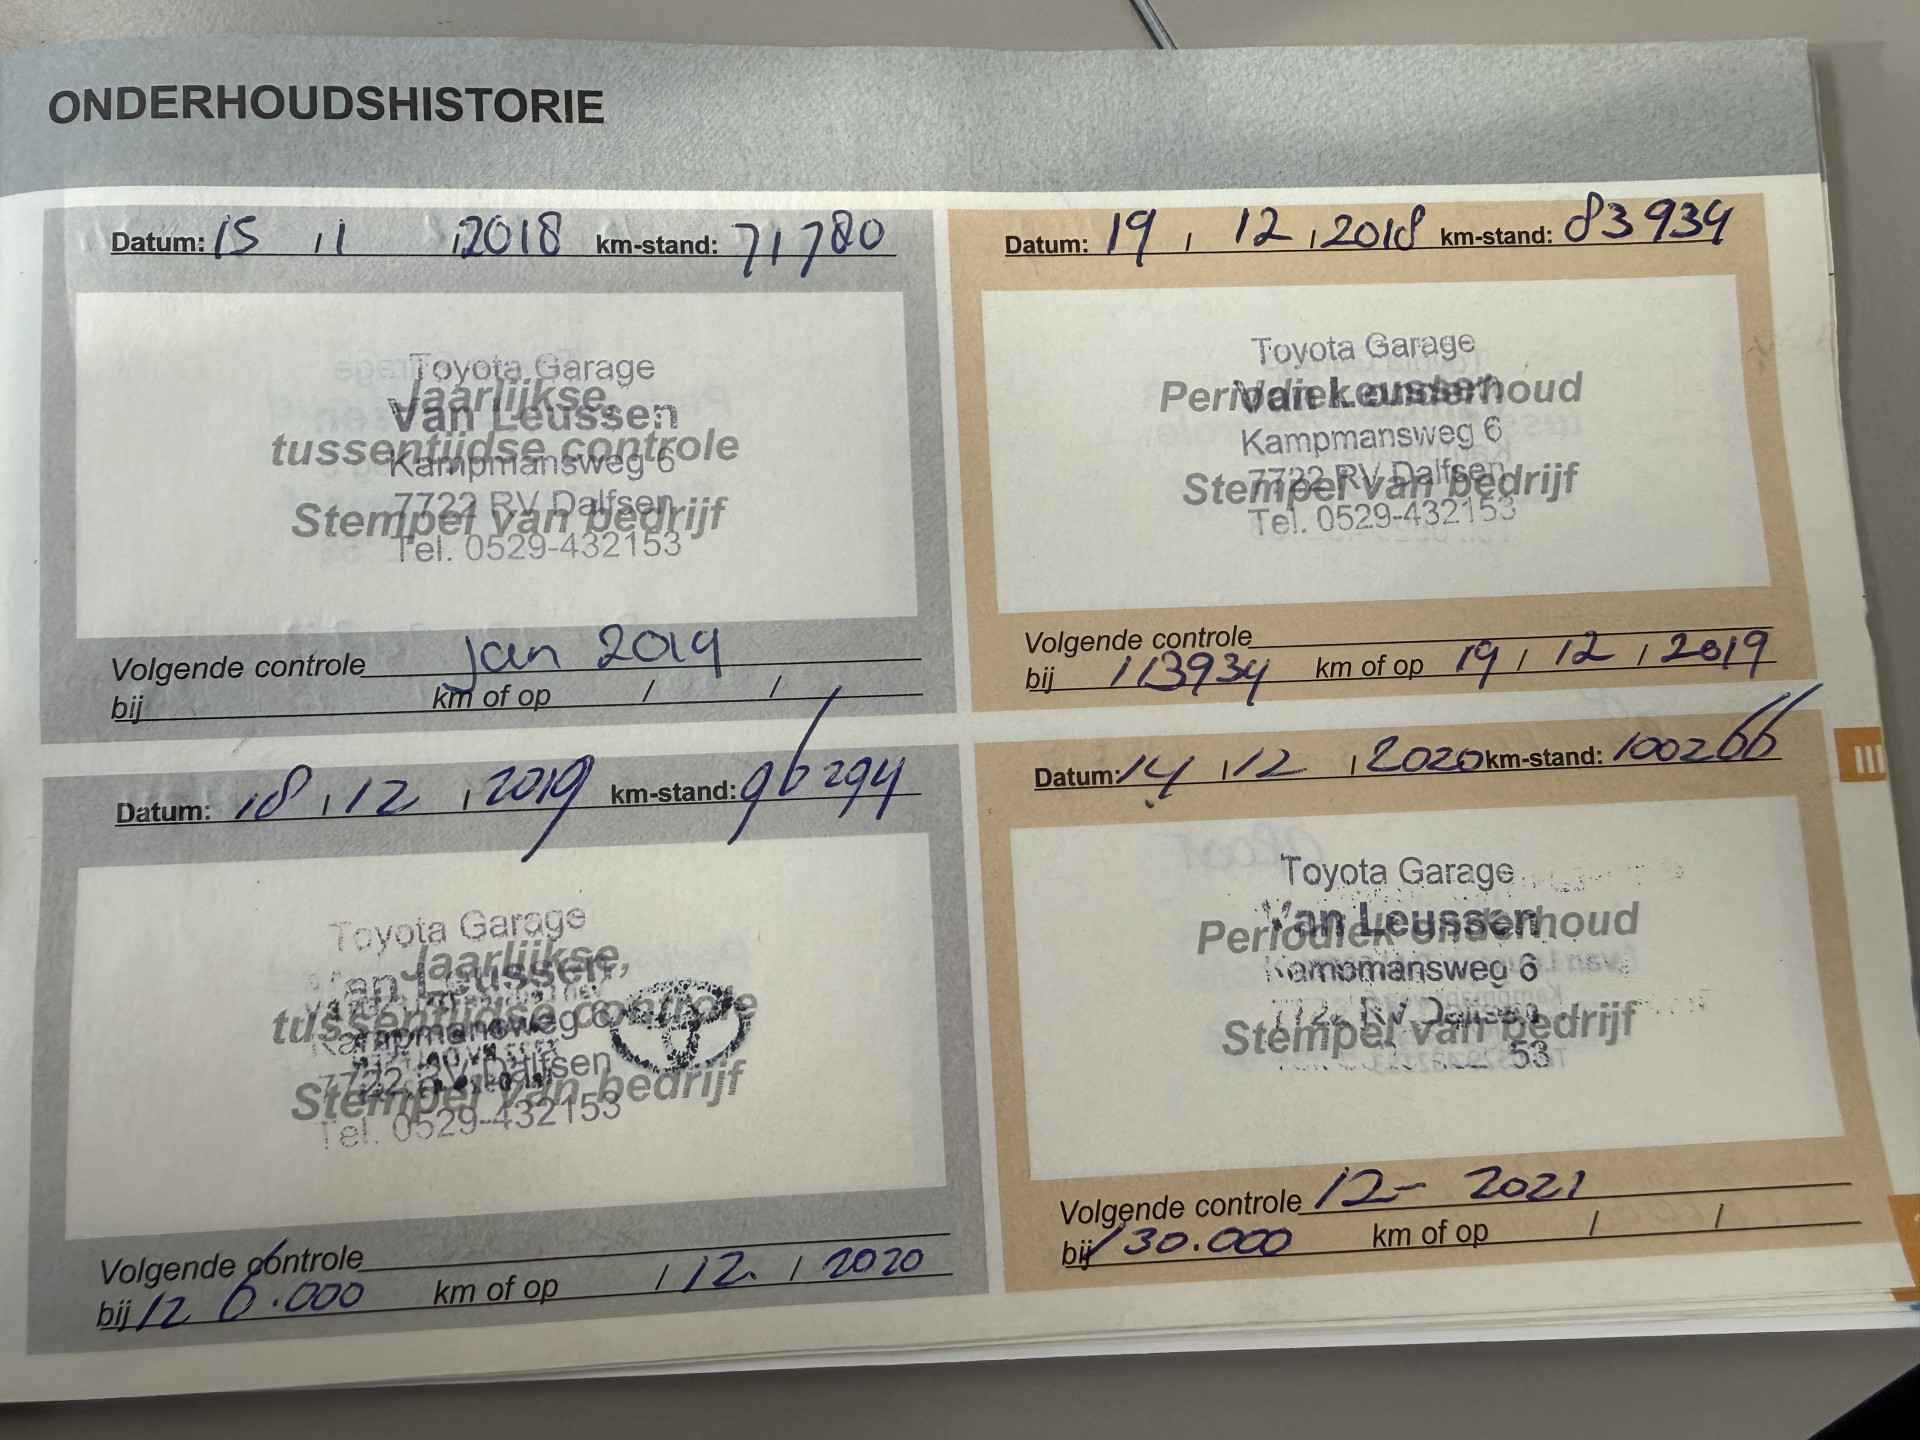 ONDERHOUDSHISTORIE
Datum: 15 / 1 / 2018 km-stand: 71780
Toyota Garage
Jaarlijkse,
Van Leussen
tussentijdse controle
Kampmansweg 6
7722 RV Dalfsen
Stempel van bedrijf
Tel. 0529-432153
Volgende controle jan 2019
bij km of op / /
Datum: 19 / 12 / 2018 km-stand: 83934
Toyota Garage
Periodiek onderhoud
Van Leussen
Kampmansweg 6
7722 RV Dalfsen
Stempel van bedrijf
Tel. 0529-432153
Volgende controle
bij 113934 km of op 19 / 12 / 2019
Datum: 18 / 12 / 2019 km-stand: 96294
Toyota Garage
Jaarlijkse,
Van Leussen
tussentijdse controle
Kampmansweg 6
7722 RV Dalfsen
Stempel van bedrijf
Tel. 0529-432153
Volgende controle
bij 126.000 km of op / 12. / 2020
Datum: 14 / 12 / 2020 km-stand: 100266
Toyota Garage
Van Leussen
Periodiek onderhoud
Kampmansweg 6
7722 RV Dalfsen
Stempel van bedrijf
53
Volgende controle 12- 2021
bij 130.000 km of op / /
III